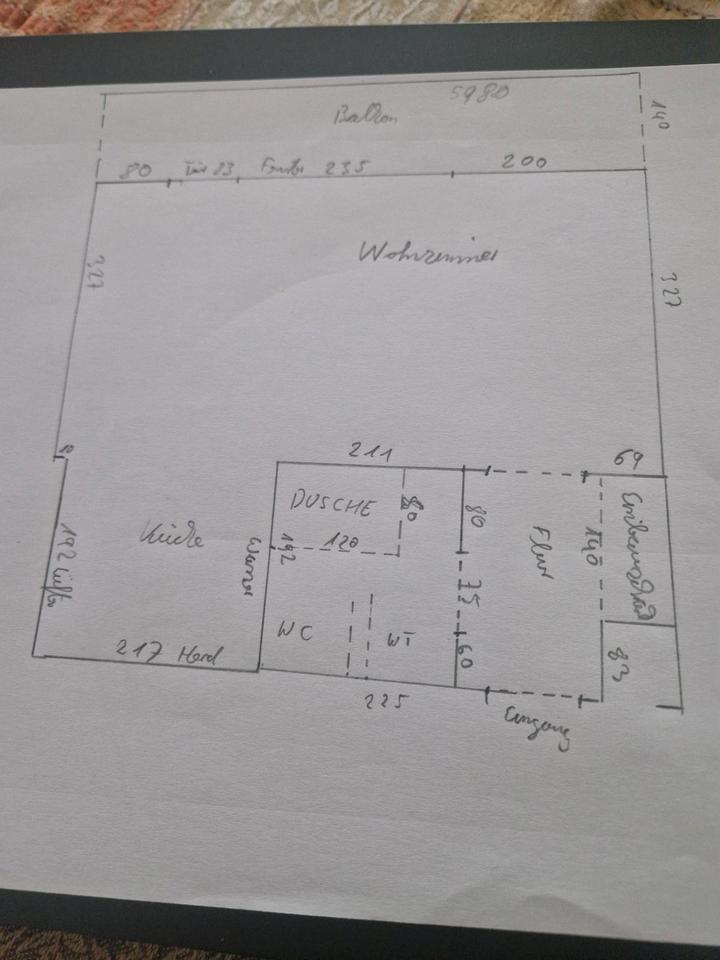 5980
Balkon
140
80
Tür 83
Fenster 235
200
Wohnzimmer
327
327
211
69
DUSCHE
80
80
Flur
140
Einbauschrank
Küche
Wasser
192
120
192 Lüfter
75
WC
WT
60
83
217 Herd
225
Eingang